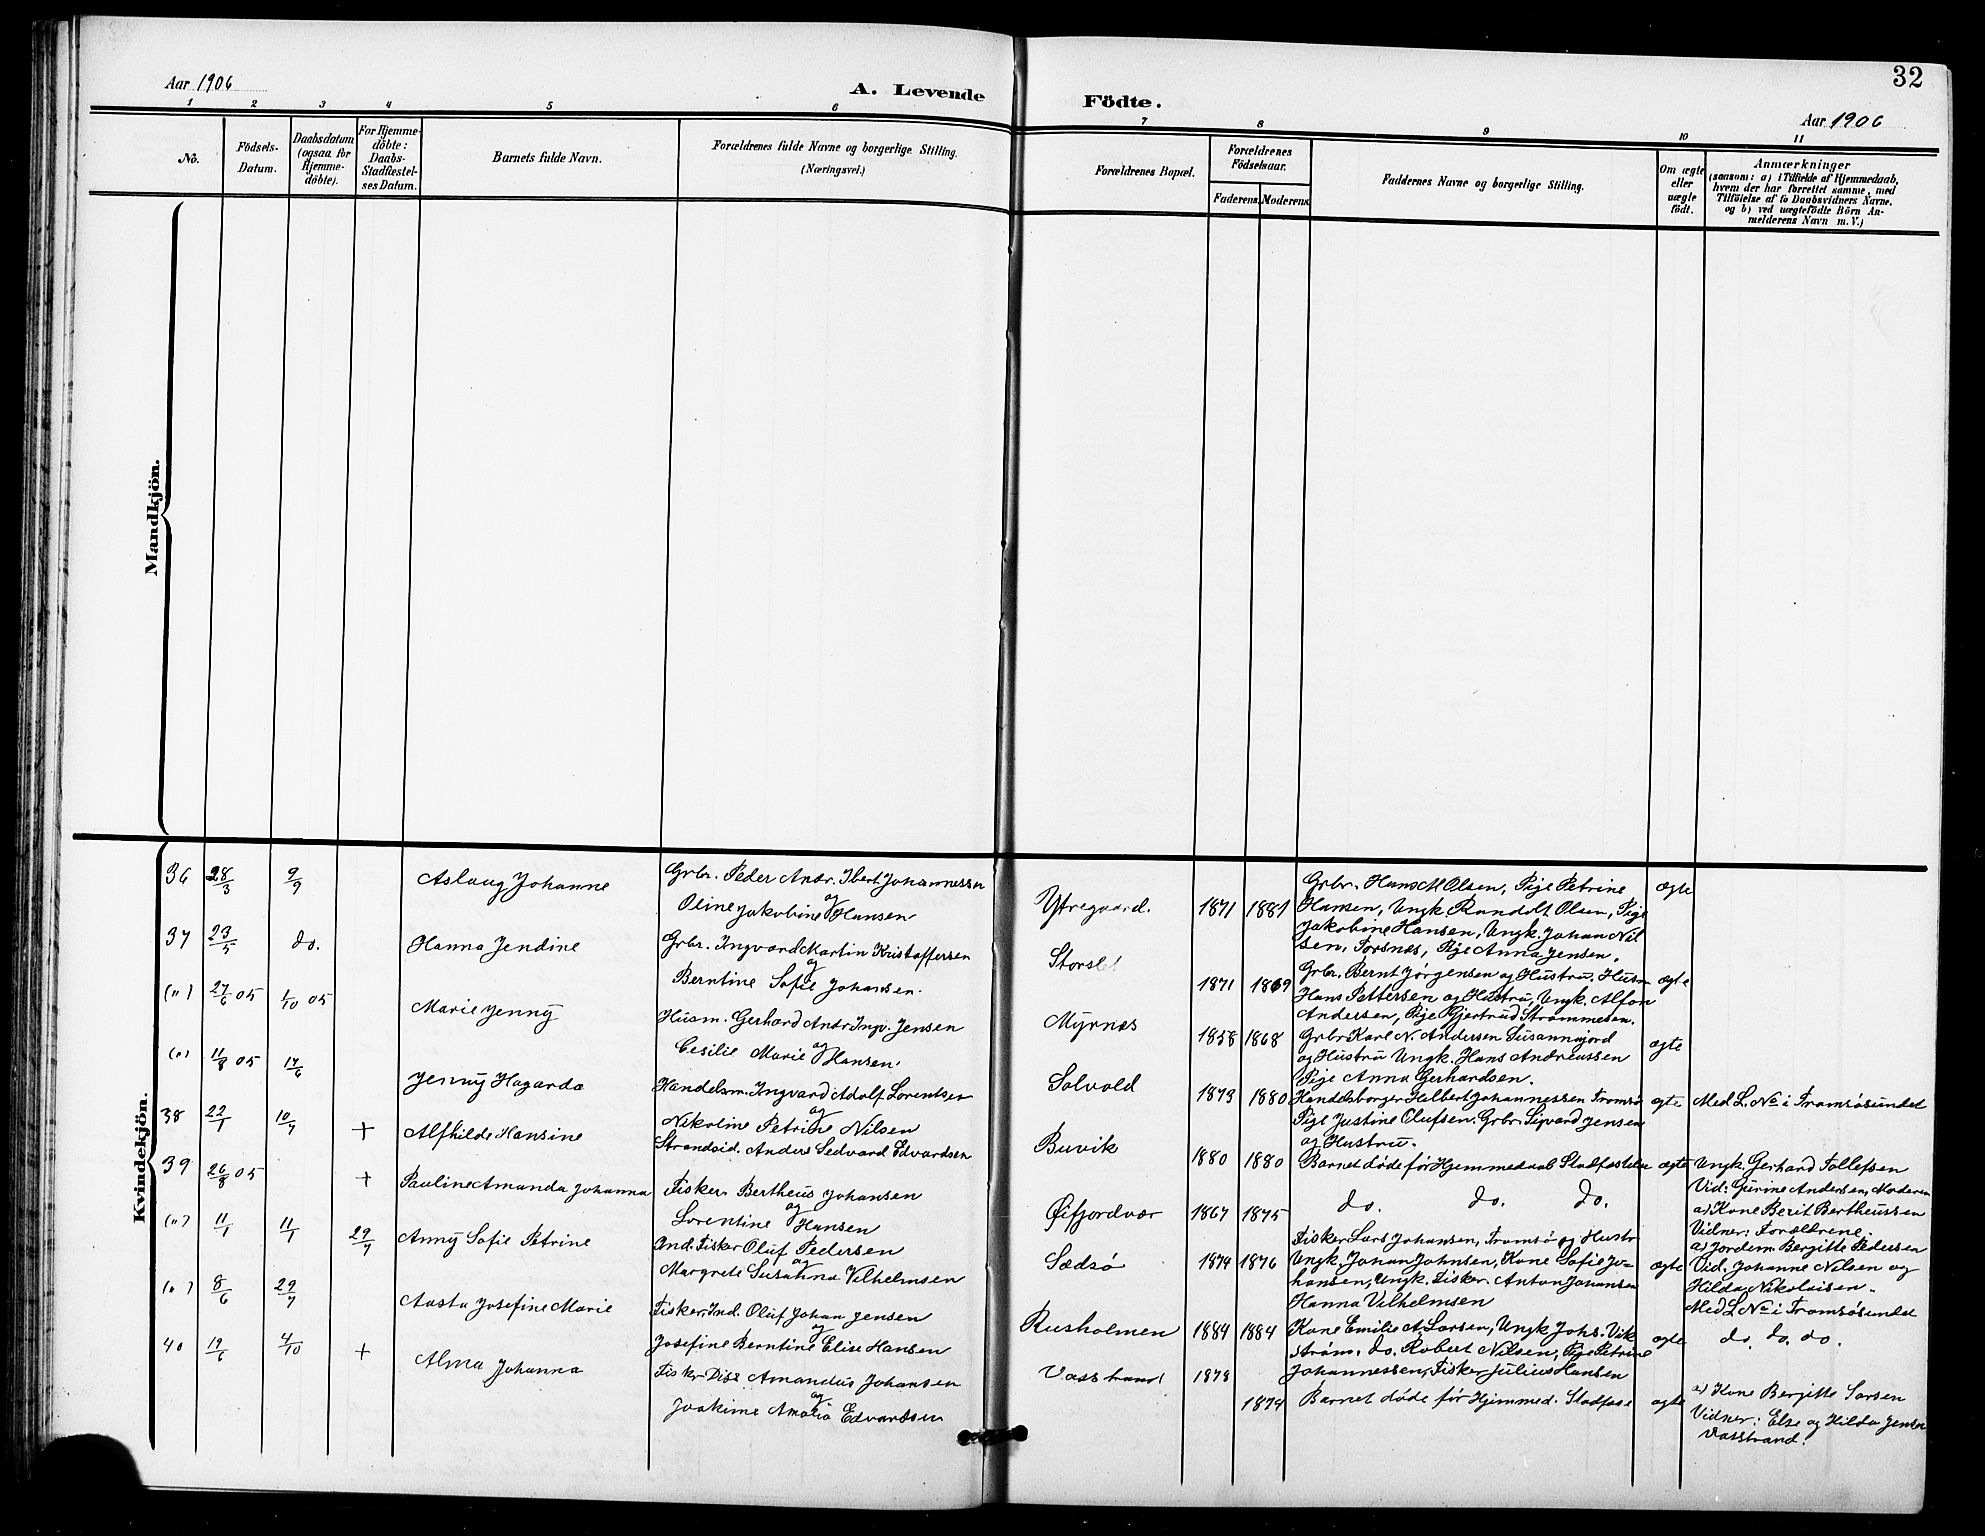 Aar 1906
A. Levende Födte.
32
Aar 1906
1 2 3 4 5 6 7 8 9 10 11
No.
Födsels-
Datum.
Daabsdatum
(ogsaa for
Hjemme-
döbte).
For Hjemme-
döbte:
Daabs-
Stadfæstel-
ses Datum.
Barnets fulde Navn.
Forældrenes fulde Navne og borgerlige Stilling.
(Næringsvei.)
Forældrenes Bopæl.
Forældrenes
Födselsaar.
Faderens. Moderens.
Faddernes Navne og borgerlige Stilling.
Om ægte
eller
uægte
födt.
Anmærkninger
(saasom: a) i Tilfælde af Hjemmedaab,
hvem der har forrettet samme, med
Tilföielse af to Daabsvidners Navne,
og b) ved uægtefödte Börn An-
melderens Navn m. V.)
Mandkjön.
Kvindekjön.
36 28/3 9/9 Aslaug Johanne
Grbr. Peder Andr. Ibert Johannessen
og
Oline Jakobine Hansen
Ytregaard. 1871 1881
Grbr. Hans M Olsen, Pige Petrine
Hansen, Ungk. Randolt Olsen, Pige
Jakobine Hansen, Ungk. Johan Nil
sen, Forsnes, Pige Anna Jensen.
ægte
37 23/5 do. Hanna Jendine
Grbr. Ingvard Martin Kristoffersen
og
Berntine Sofie Johansen.
Storslet 1871 1869
Grbr. Bernt Jørgensen og Hustru, Husm
Hans Pettersen og Hustru, Ungk. Alfon
Andersen, Pige Gjertrud Strømmesen.
ægte
(") 27/6 05 1/10 05 Marie Jenny
Husm. Gerhard Andr Ingv. Jensen
og
Cesilie Marie Hansen.
Myrnes 1858 1868
Grbr Karl N. Andersen Susannajord
og Hustru Ungk. Hans Andreassen
Pige Anna Gerhardsen.
ægte
(") 11/8 05 17/6 Jenny Hagarda
Handelsm. Ingvard Adolf Lorentsen
og
Nikoline Petrine Nilsen
Solvold 1873 1880
Handelsborger Helbert Johannessen Tromsø
Pige Justine Olufsen. Grbr. Sigvard Jensen
og Hustru.
ægte
Med L. No i Tromsøsundet
38 22/1 10/7 + Alfhilde Hansine
Strandsid. Anders Sedvard Edvardsen
Buvik 1880 1880
Barnet døde før Hjemmedaab Stadfæstelse
ægte
Ungk. Gerhard Tollefsen
Vid: Gurine Andersen, Moderen
39 26/8 05 + Pauline Amanda Johanna
Fisker Bertheus Johansen
og
Lorentine Hansen
Øifjordvær 1867 1875
do. do. do.
a) Kone Berit Bertheussen
Vidner: Forældrene.
(") 11/1 11/1 29/7 Anny Sofie Petrine
Ind. Fisker Oluf Pedersen
og
Margrete Susanna Vilhelmsen
Sædsø 1874 1876
Fisker Lars Johansen, Tromsø og Hustr
Ungk. Johan Johnsen, Kone Sofie Jo-
hansen, Ungk. Fisker Anton Johansen
Hanna Vilhelmsen
ægte
a) Jordem Bergitte Pedersen
Vid. Johanne Nilsen og
Hilda Nikolaisen.
Med L No i Tromsøsundet
(") 8/6 29/7 Aasta Josefine Marie
Fisker, Ind. Oluf Johan Jensen
og
Josefine Berntine Elise Hansen
Rusholmen 1884 1884
Kone Emilie A Larsen, Ungk Johs. Vik
strøm, do. Robert Nilsen, Pige Petrine
Johannessen, Fisker Julius Hansen
ægte
do. do. do.
40 19/6 4/10 + Alma Johanna
Fisker Amandus Johansen
og
Joakime Amalia Edvardsen
Vasstrand 1878 1874
Barnet døde før Hjemmed. Stadfæst
ægte
a) Kone Bergitte Larsen
Vidner: Else og Hilda Jensen
Vasstrand.